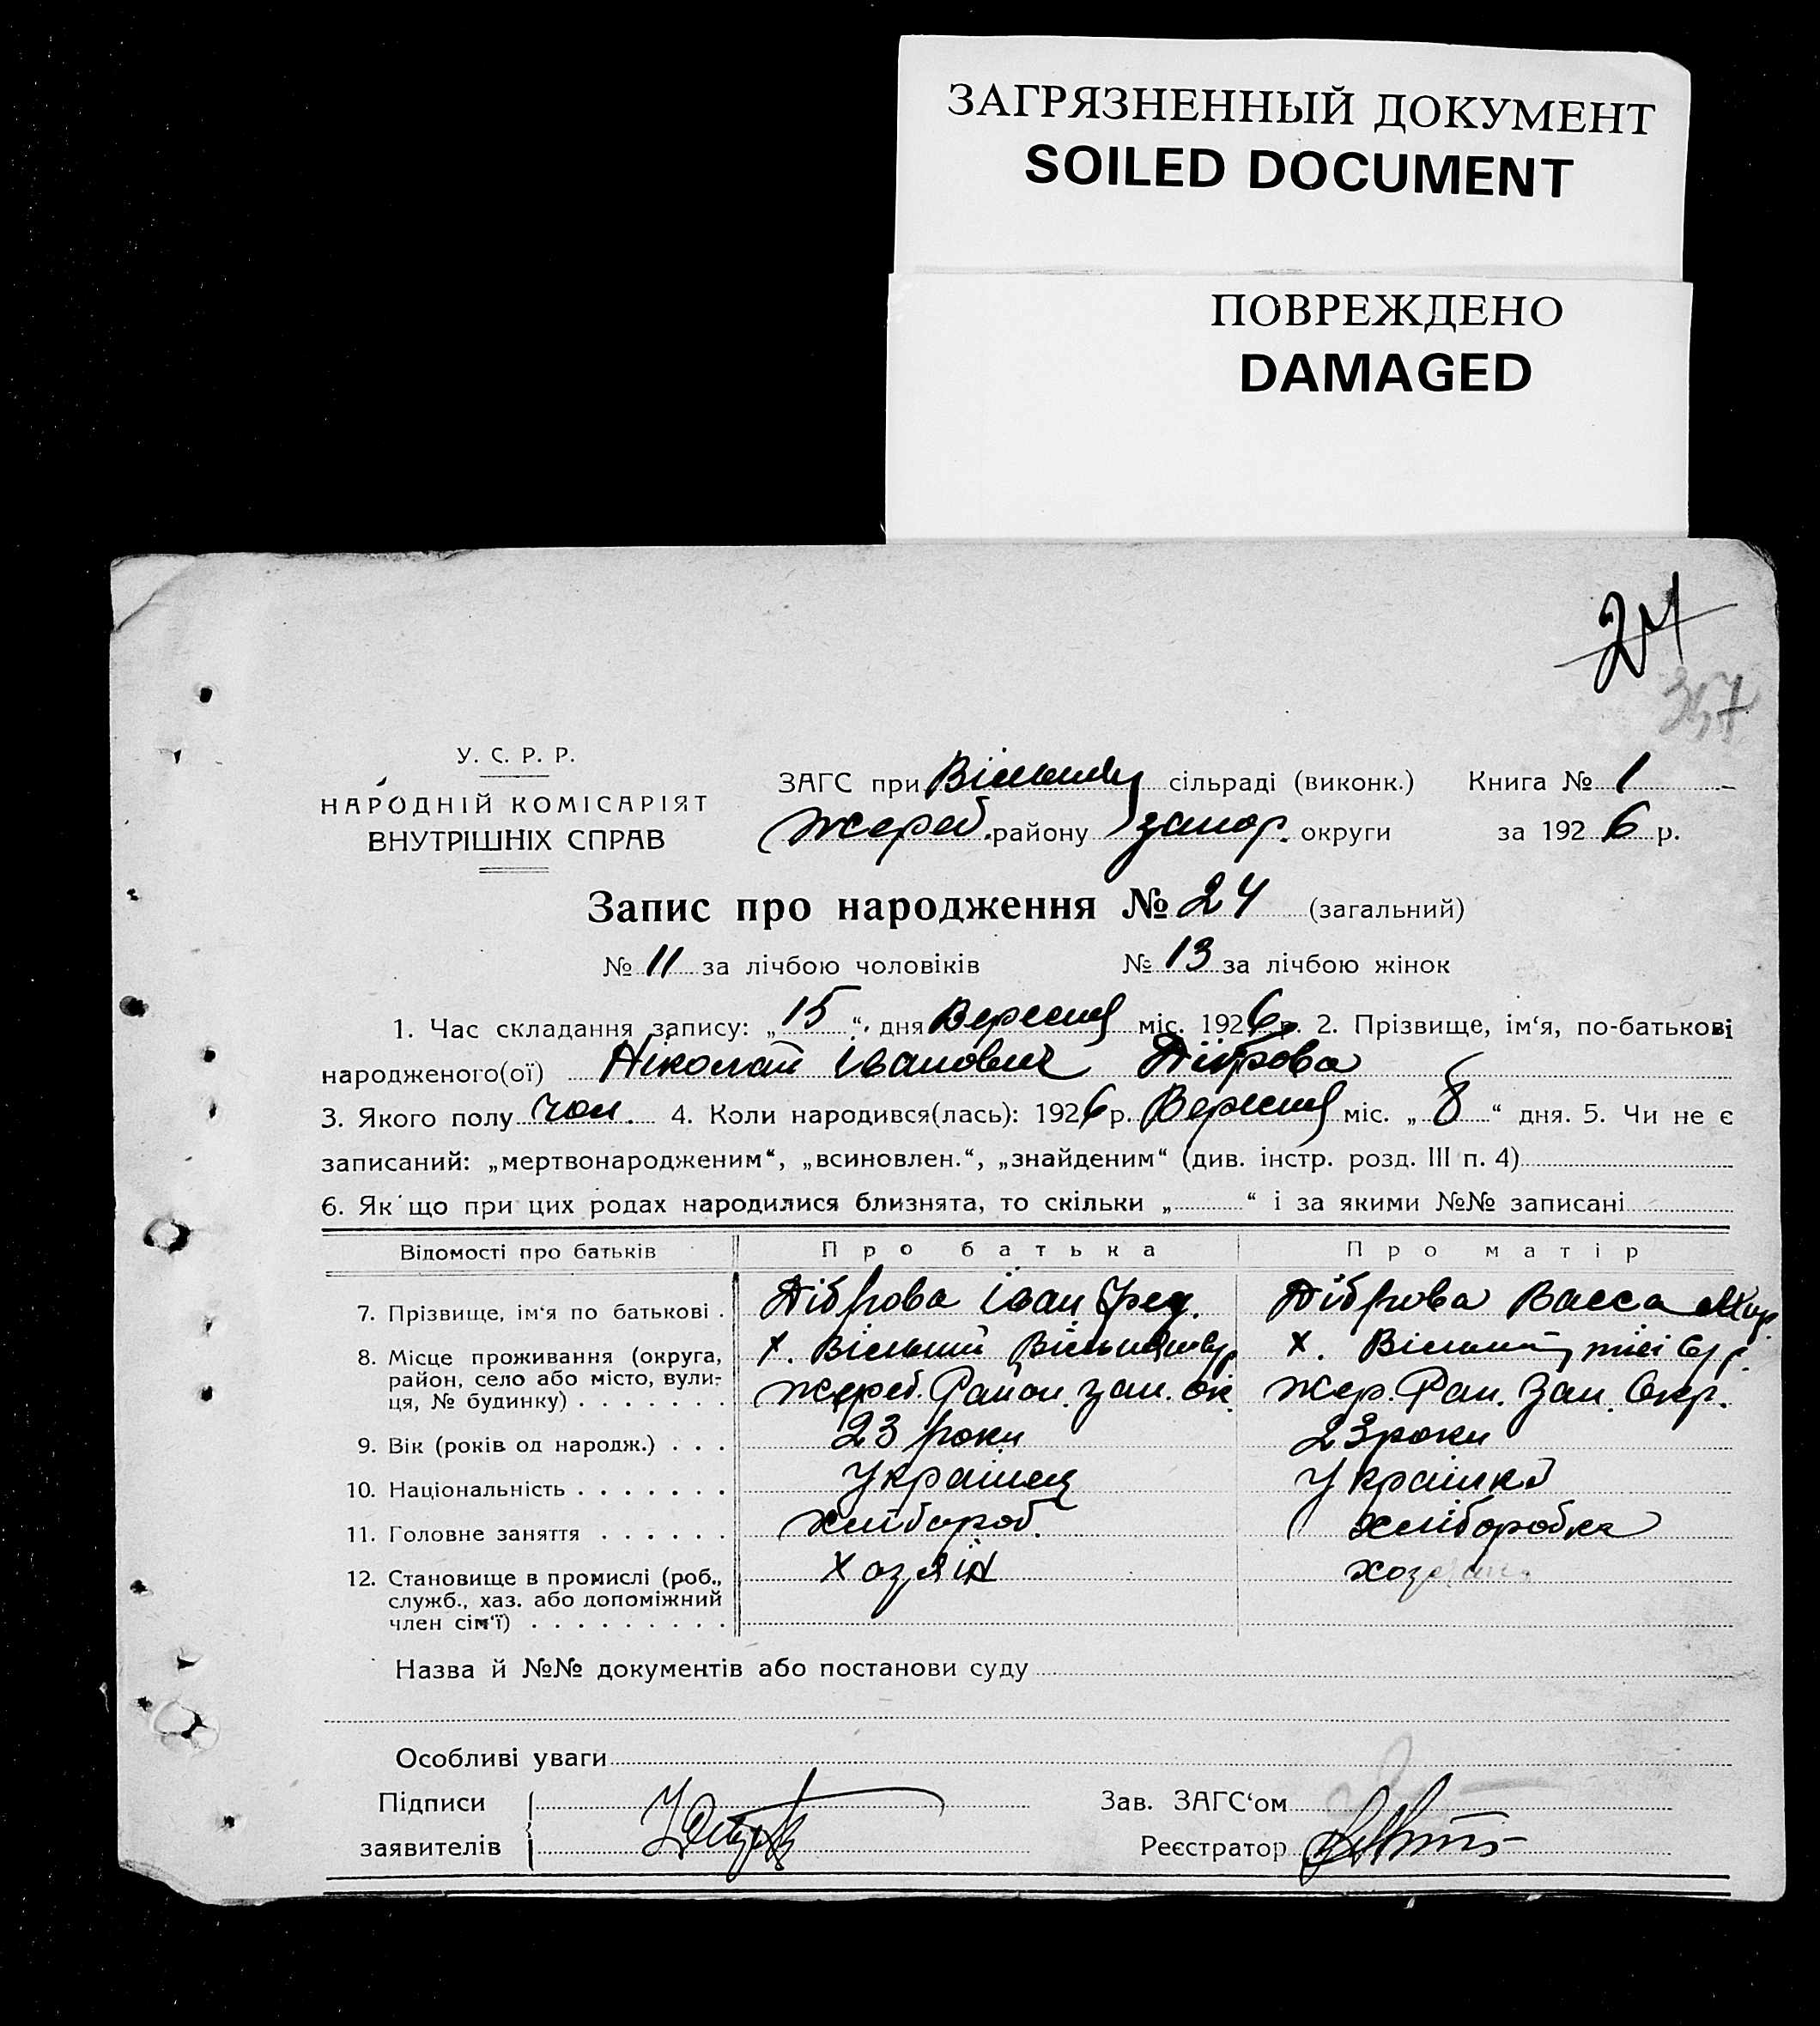 ЗАГРЯЗНЕННЫЙ ДОКУМЕНТ
SOILED DOCUMENT
ПОВРЕЖДЕНО
DAMAGED
24
357
У. С. Р. Р.
НАРОДНІЙ КОМІСАРІЯТ
ВНУТРІШНІХ СПРАВ
ЗАГС при сільраді (виконк.) Книга № 1
Жереб. району запор. округи за 1926 р.
Запис про народження № 24 (загальний)
№ 11 за лічбою чоловіків № 13 за лічбою жінок
1. Час складання запису: „15“ дня Вересня міс. 1926 р. 2. Прізвище, ім‘я, по-батькові
народженого(ої) Ніколай Іванович Діброва
3. Якого полу чол. 4. Коли народився(лась): 1926 р. Вересня міс. „8“ дня. 5. Чи не є
записаний: „мертвонародженим“, „всиновлен.“, „знайденим“ (див. інстр. розд. III п. 4)
6. Як що при цих родах народилися близнята, то скільки „ “ і за якими №№ записані
Відомості про батьків Про батька Про матір
7. Прізвище, ім‘я по батькові . Діброва Іван Діброва Васса
8. Місце проживання (округа, х. Вільний х.
район, село або місто, вули- Жереб. Район. зап. ок Жер. Рай. Зап. Окр.
ця, № будинку)
9. Вік (років од народж.) . . . 23 роки 23 роки
10. Національність Украінец Украінка
11. Головне заняття Хлібороб. Хліборобка
12. Становище в промислі (роб., Хазяін
служб., хаз. або допоміжний
член сім‘ї)
Назва й №№ документів або постанови суду
Особливі уваги
Підписи Зав. ЗАГС‘ом
заявителів Реєстратор